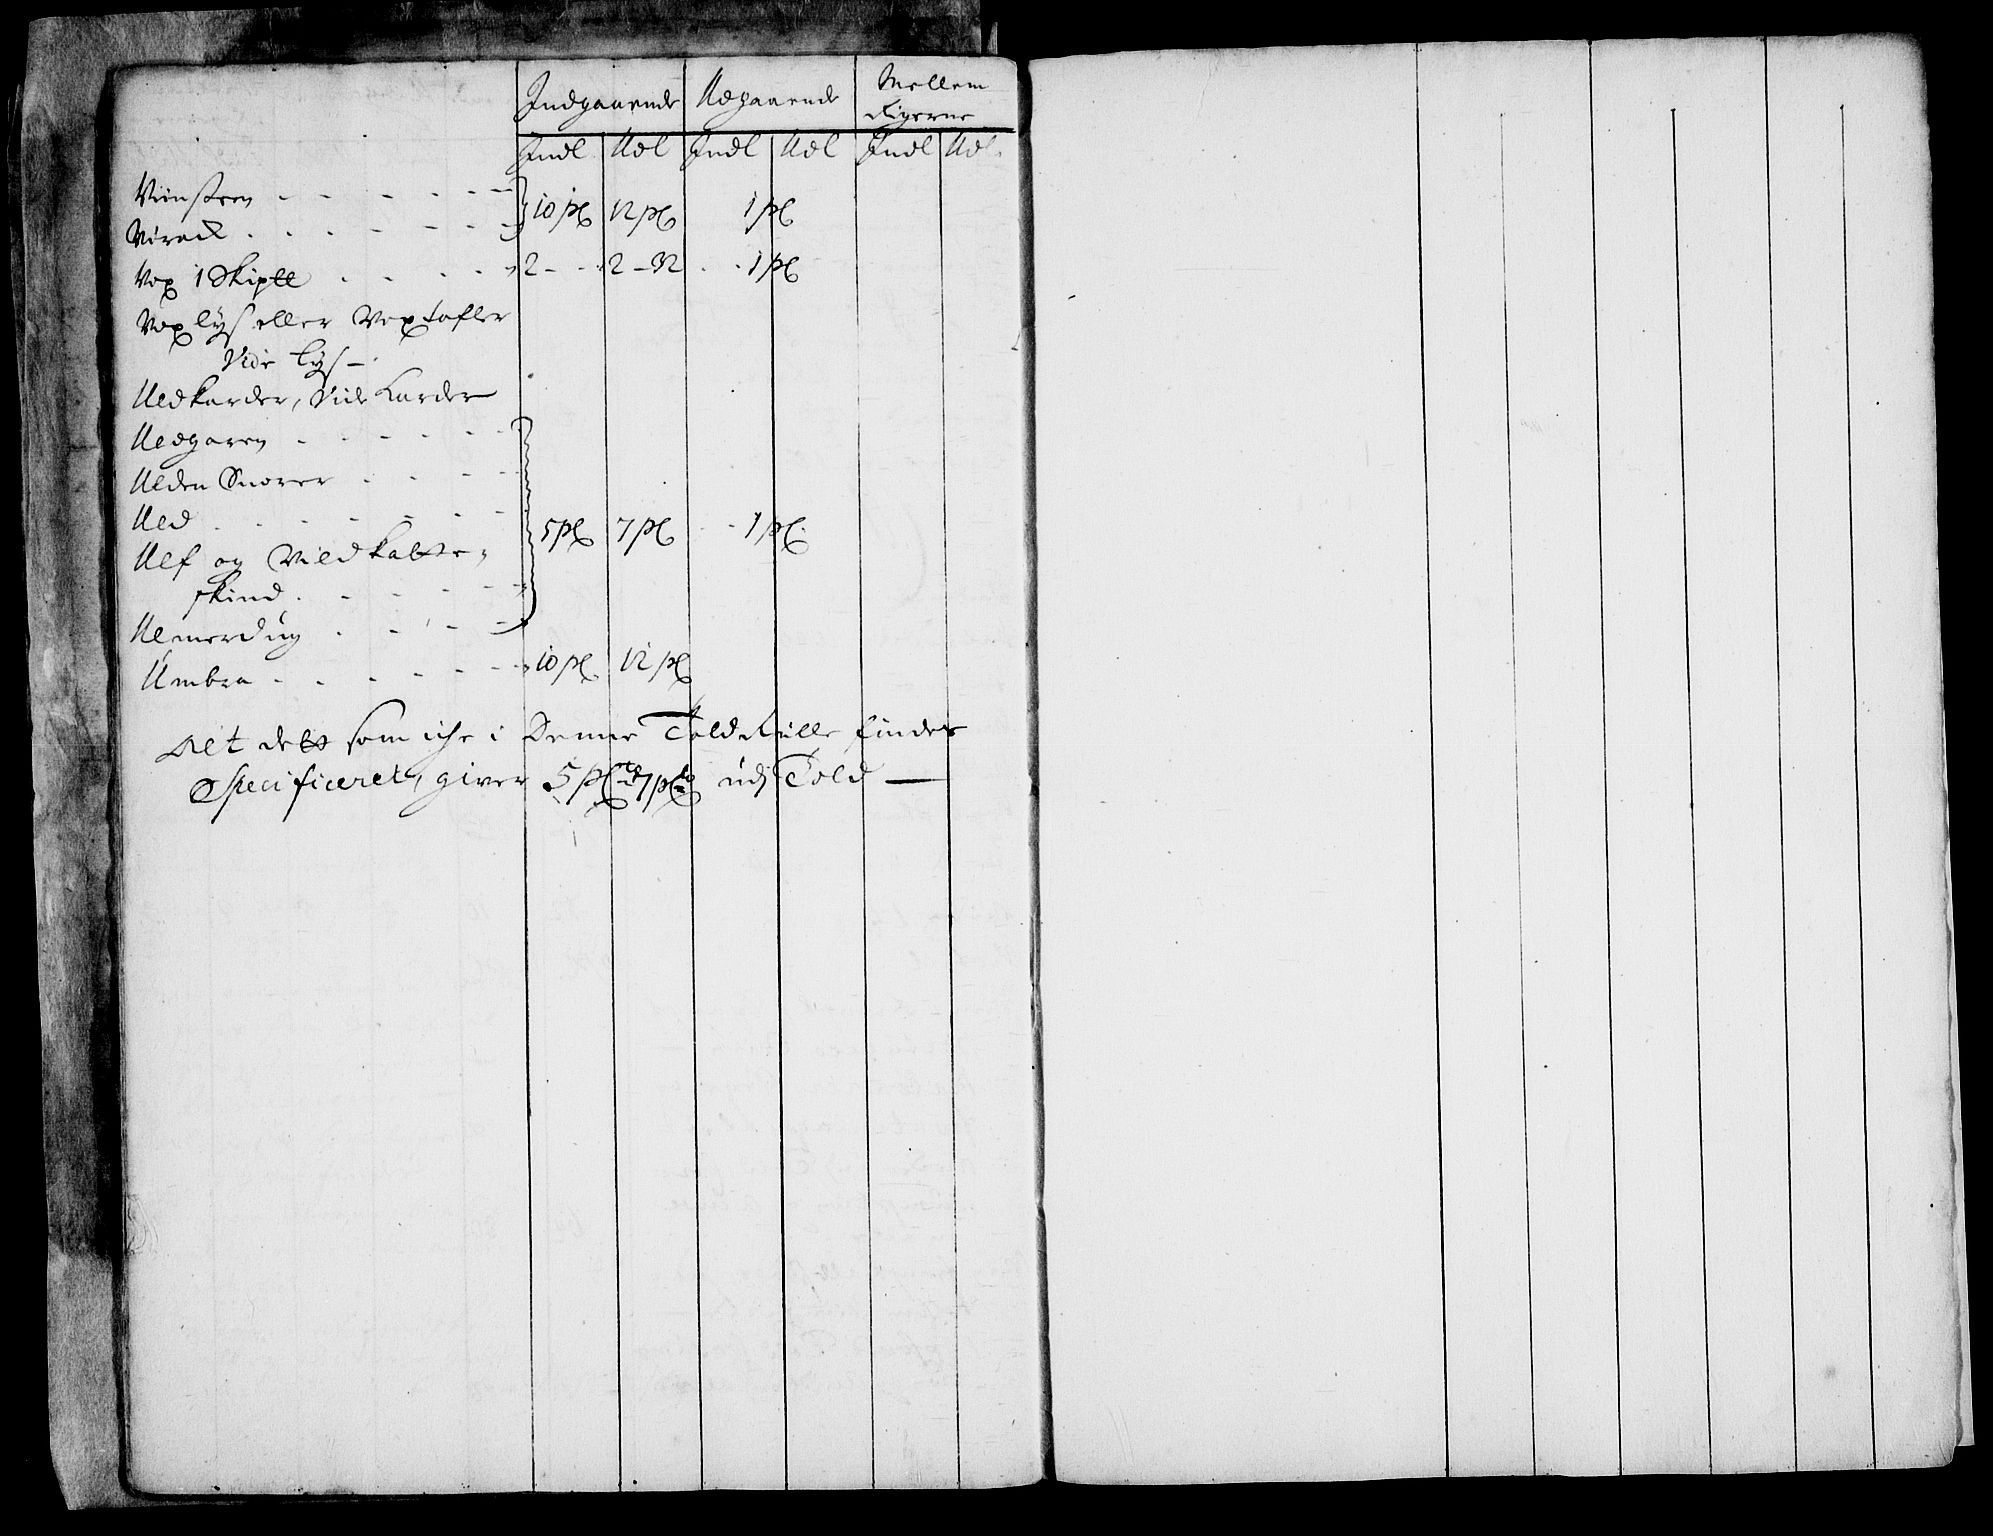 Indgaaende Udgaaende Mellem
Rigerne
Indl Udl Indl Udl Indl Udl
Viinsteen - - - - - - 10 pC 12 pC 1 pC
Virack - - - - - -
Vox 1 Skip℔ - - - - 2 - - 2 - 32 - - 1 pC
Voxlys eller Voxtafler
Vide lys -
Uldkarder, Vide Karder
Uldgaren - - - - - -
Ulden Snorer - - - -
Uld - - - - - - - 5 pC 7 pC - - 1 pC
Ulf og Vildkatte-
skind - - - - - -
Ulmerdug - - - - -
Umbra - - - - - - 10 pC 12 pC
Alt dett som iche i Denne Told Rulle findes
Specificeret, giver 5 pC 7 pC udj Told —